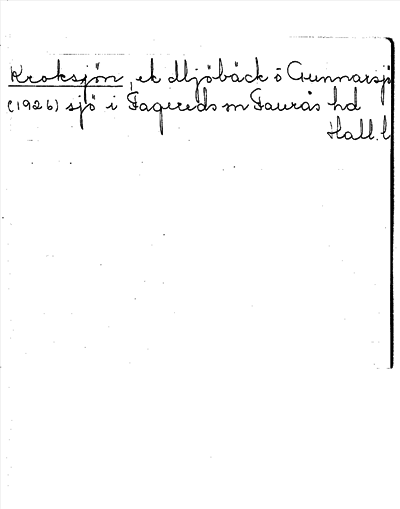 Kroksjön, ek Mjöbäck ö Gunnarsjö
(1926) sjö i Fagereds sn Faurås hd
Hall. l